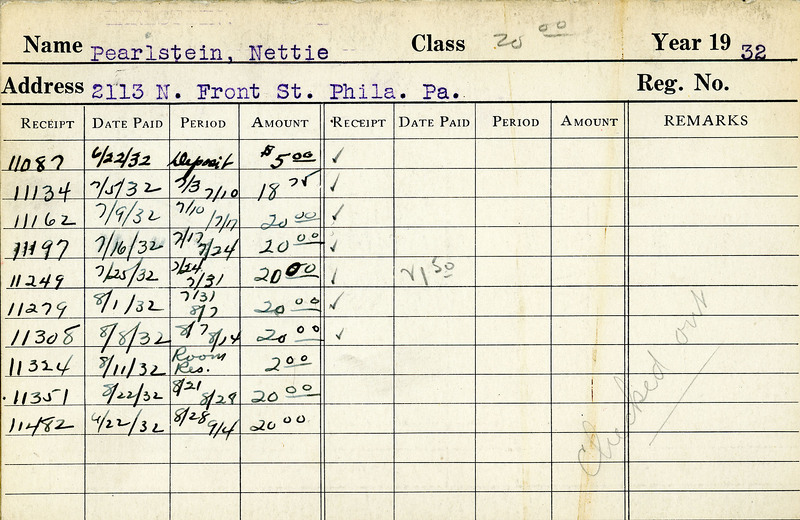 Name Pearlstein, Nettie Class 20 00 Year 19 32
Address 2113 N. Front St. Phila. Pa. Reg. No.
RECEIPT DATE PAID PERIOD AMOUNT RECEIPT DATE PAID PERIOD AMOUNT REMARKS
11087 6/22/32 Deposit $5 00 ✓
11134 7/5/32 7/3 7/10 18 75 ✓
11162 7/9/32 7/10 7/17 20 00 ✓
11197 7/16/32 7/17 7/24 20 00 ✓
11249 7/25/32 7/24 7/31 20 00 ✓ 21 50
11279 8/1/32 7/31 8/7 20 00 ✓
11308 8/8/32 8/7 8/14 20 00 ✓
11324 8/11/32 Room Res. 2 00
11351 8/22/32 8/21 8/28 20 00
11482 9/22/32 8/28 9/4 20 00
Checked out